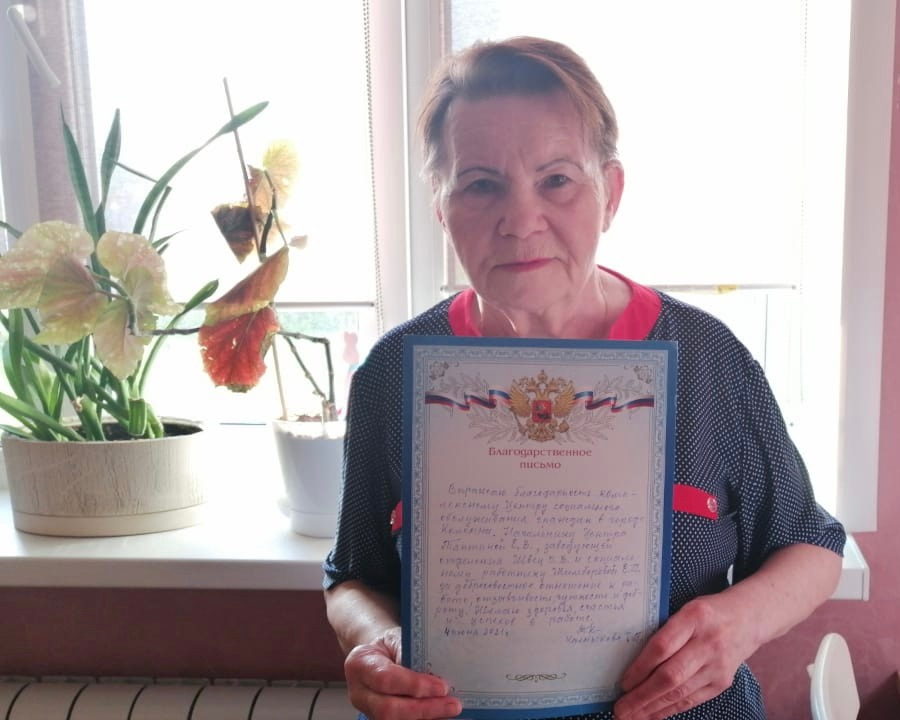 Благодарственное
письмо
Выражаю благодарность комп-
лексному Центру социального
обслуживания граждан в городе
Начальнику Центра
Е.В., заведующей
отделения Швец В.В. и социаль-
ному работнику Е.П.
за добросовестное отношение к ра-
боте, отзывчивость чуткость и доб-
роту. Желаю здоровья, счастья
и успехов в работе.
4 июня 2021г